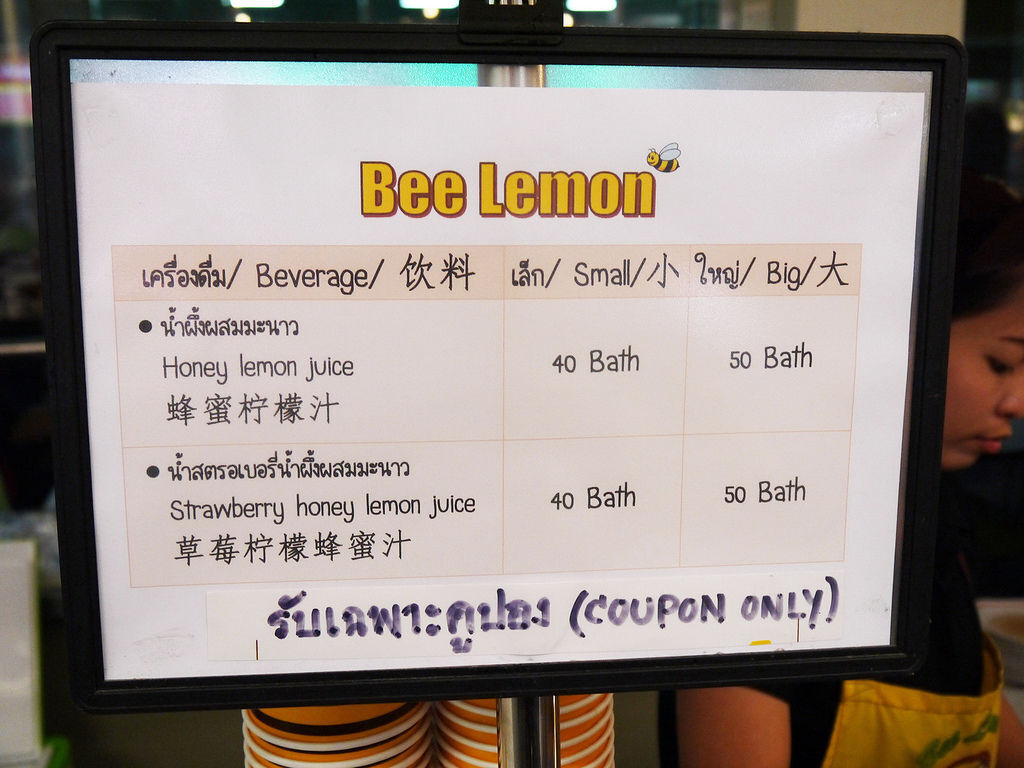 Bee Lemon
เครื่องดื่ม/ Beverage/ 饮料 เล็ก/ Small/小 ใหญ่/ Big/大
● น้ำผึ้งผสมมะนาว
Honey lemon juice 40 Bath 50 Bath
蜂蜜柠檬汁
● น้ำสตรอเบอรี่น้ำผึ้งผสมมะนาว
Strawberry honey lemon juice 40 Bath 50 Bath
草莓柠檬蜂蜜汁
รับเฉพาะคูปอง (COUPON ONLY)